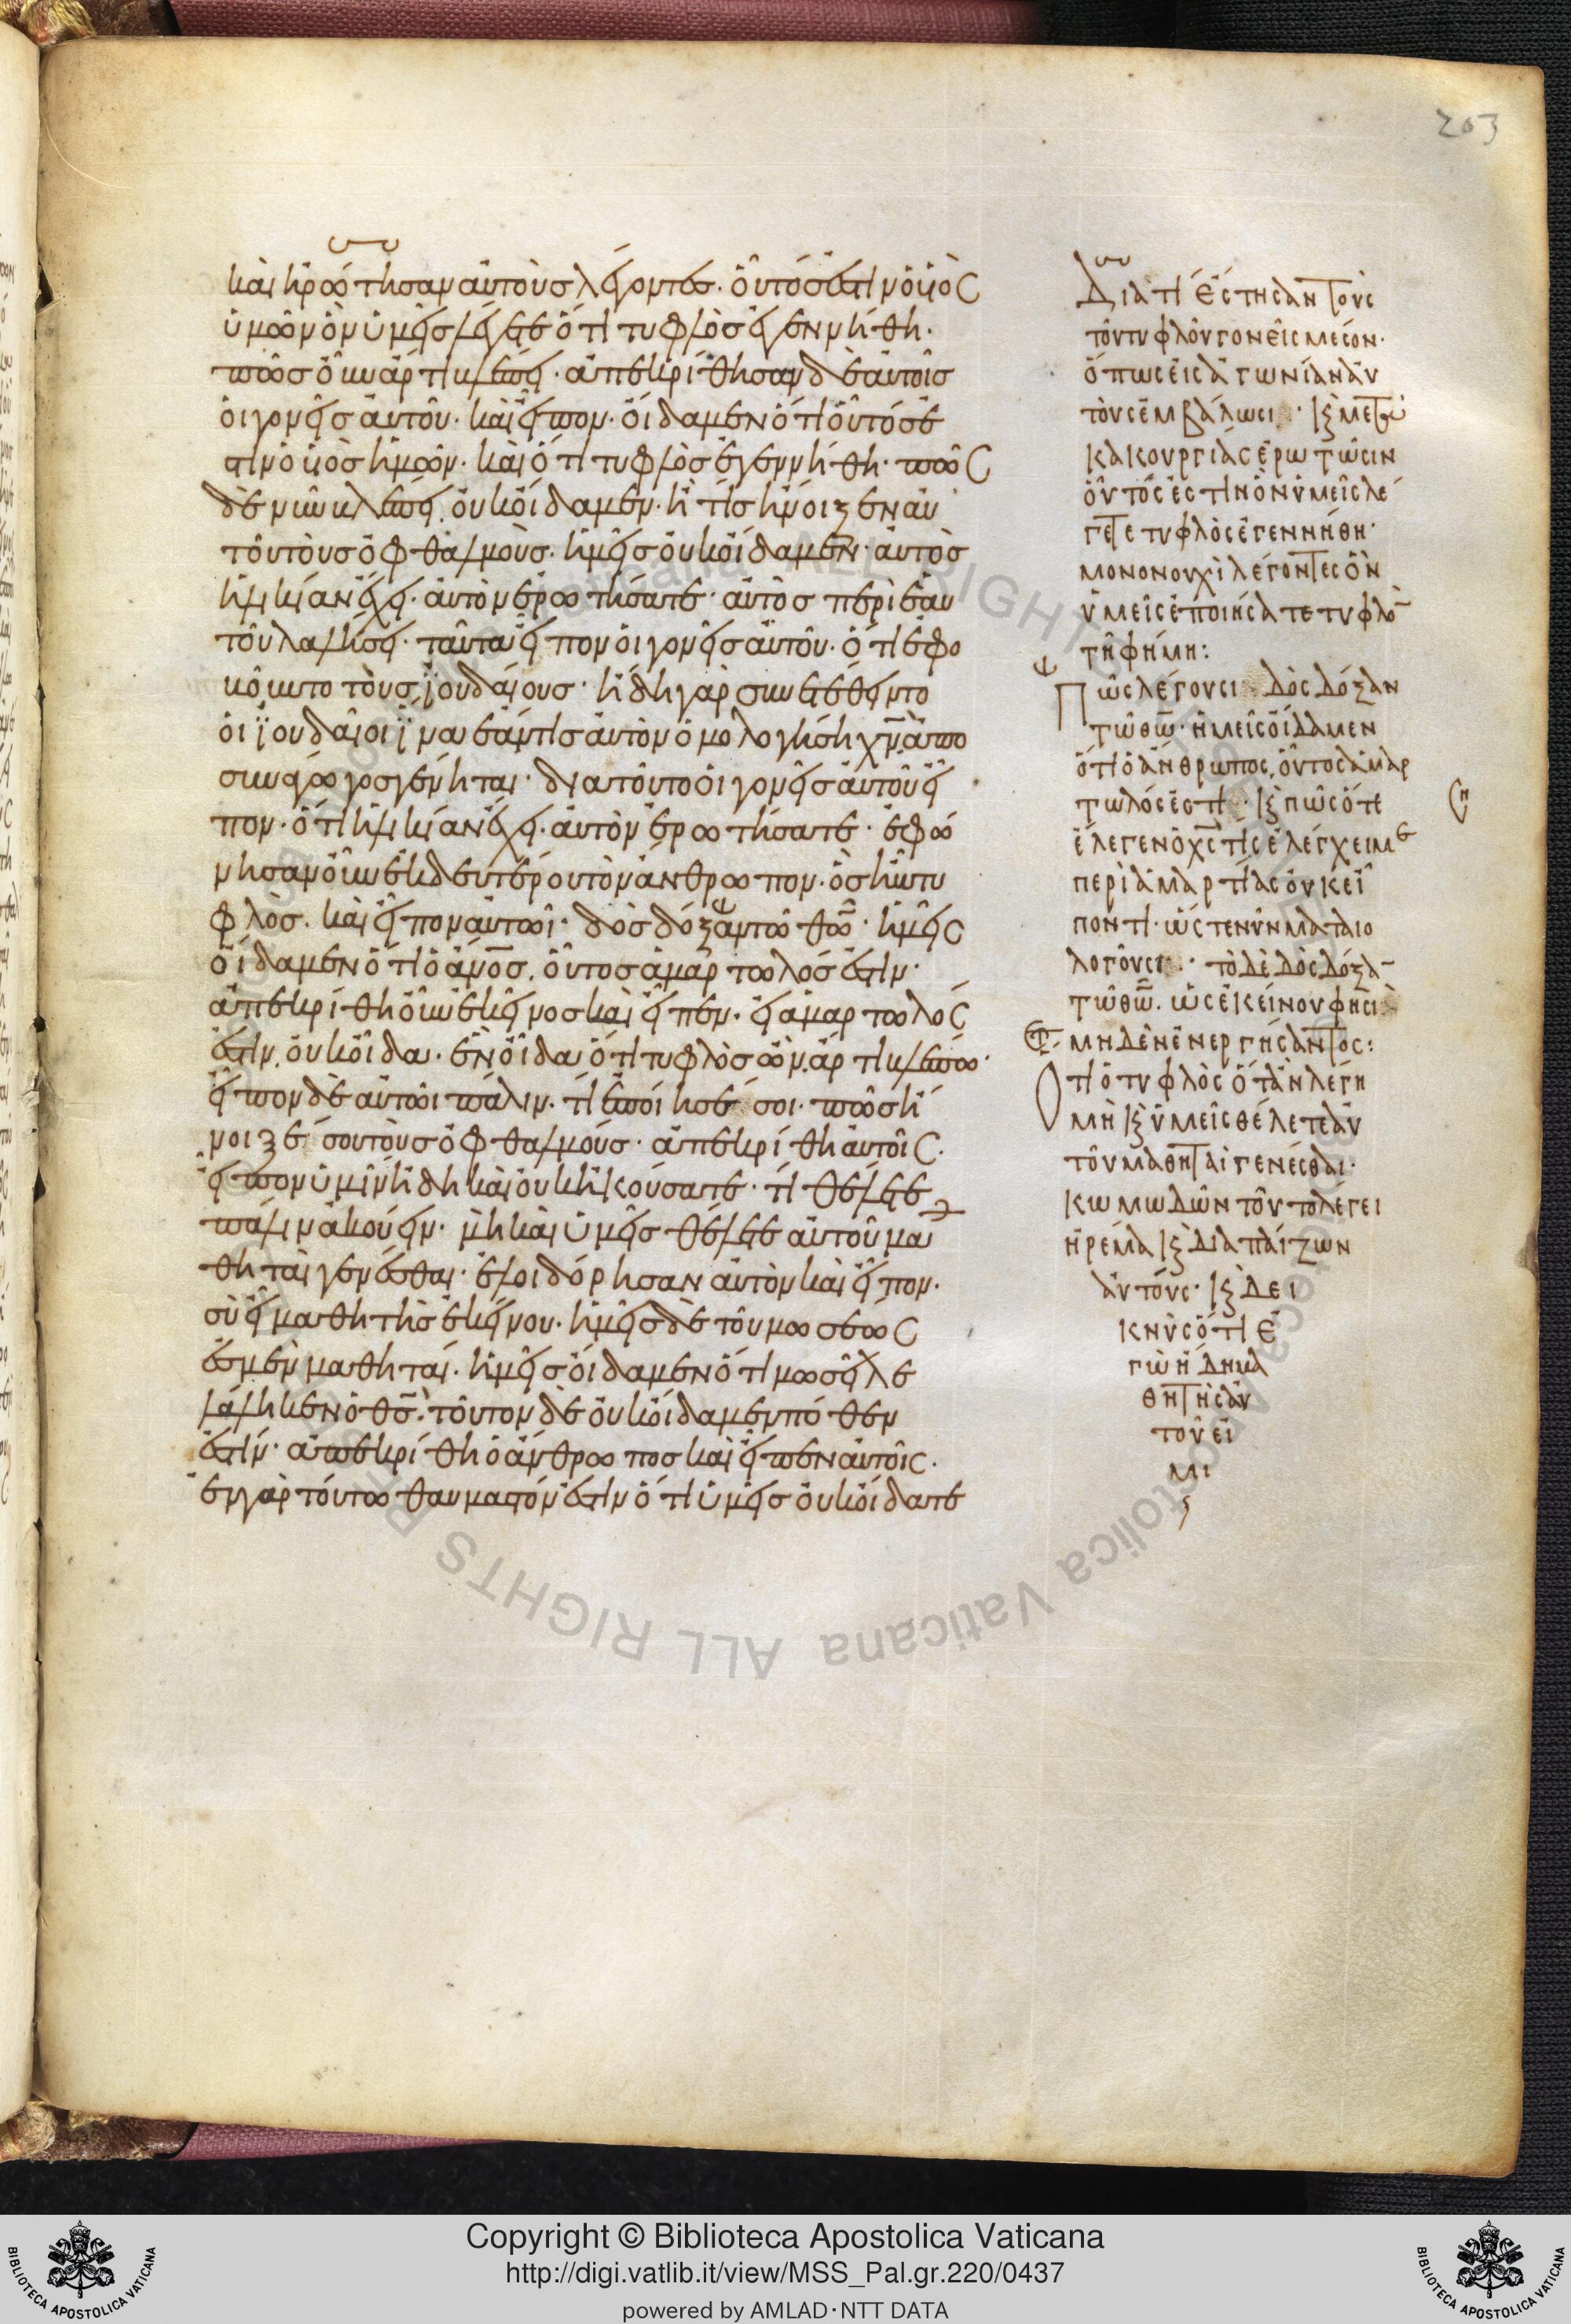 203
καὶ ἠρώτησαν αὐτοὺς λέγοντες· οὗτός ἐστιν ὁ υἱὸς
ὑμῶν ὃν ὑμεῖς λέγετε ὅτι τυφλὸς ἐγεννήθη·
πῶς οὖν ἄρτι βλέπει· ἀπεκρίθησαν δὲ αὐτοῖς
οἱ γονεῖς αὐτοῦ· καὶ εἶπον· οἴδαμεν ὅτι οὗτός ἐ
στιν ὁ υἱὸς ἡμῶν· καὶ ὅτι τυφλὸς ἐγεννήθη· πῶς
δὲ νῦν βλέπει, οὐκ οἴδαμεν· ἢ τίς ἤνοιξεν αὐ
τοῦ τοὺς ὀφθαλμοὺς· ἡμεῖς οὐκ οἴδαμεν· αὐτὸς
ἡλικίαν ἔχει· αὐτὸν ἐρωτήσατε· αὐτὸς περὶ ἑαυ
τοῦ λαλήσει· ταῦτα εἶπον οἱ γονεῖς αὐτοῦ· ὅτι ἐφο
βοῦντο τοὺς ἰουδαίους· ἤδη γὰρ συνετέθειντο
οἱ ἰουδαῖοι ἵνα ἐάν τις αὐτὸν ὁμολογήσῃ χν̅, ἀπο
συνάγωγος γένηται· διατοῦτο οἱ γονεῖς αὐτοῦ εἶ
πον· ὅτι ἡλικίαν ἔχει· αὐτὸν ἐρωτήσατε· ἐφώ
νησαν οὖν ἐκ δευτέρου τὸν ἄνθρωπον· ὃς ἦν τυ
φλὸς· καὶ εἶπον αὐτῶι· δὸς δόξαν τῶ θω̅· ἡμεῖς
οἴδαμεν ὅτι ὁ ἄνο̅ς, οὗτος ἁμαρτωλός ἐστιν·
ἀπεκρίθη οὖν ἐκεῖνος καὶ εἶπεν· εἰ ἁμαρτωλός
ἐστιν, οὐκ οἶδα· ἓν οἶδα ὅτι τυφλὸς ὢν, ἄρτι βλέπω·
εἶπον δὲ αὐτῶι πάλιν· τί ἐποίησέ σοι· πῶς ἤ
νοιξέ σου τοὺς ὀφθαλμούς· ἀπεκρίθη αὐτοῖς·
εἶπον ὑμῖν ἤδη καὶ οὐκ ἠκούσατε· τί θέλετε
πάλιν ἀκούειν· μὴ καὶ ὑμεῖς θέλετε αὐτοῦ μα
θηταὶ γενέσθαι· ἐλοιδόρησαν αὐτὸν καὶ εἶπον·
σὺ εἶ μαθητὴς ἐκείνου· ἡμεῖς δὲ τοῦ μωσέως
ἐσμὲν μαθηταί· ἡμεῖς οἴδαμεν ὅτι μωσεῖ λε
λάληκεν ὁ θς̅· τοῦτον δὲ οὐκ οἴδαμεν πόθεν
ἐστίν· ἀπεκρίθη ὁ ἄνθρωπος καὶ εἶπεν αὐτοῖς·
ἐν γὰρ τούτω θαυμαστόν ἐστιν ὅτι ὑμεῖς οὐκ οἴδατε
Διατί ἔστησαν τοὺς
τοῦ τυφλοῦ γονεῖς μέσον·
ὅπως εἰς ἀγωνίαν αὐ
τοὺς ἐμβάλωσι· κ μετὰ
κακουργίας ἐρωτῶσιν
οὗτός ἐστιν ὃν ὑμεῖς λέ
γετε τυφλὸς ἐγεννήθη·
μονονουχὶ λέγοντες ὃν
ὑμεῖς ἐποιήσατε τυφλὸ̅
τῆ φήμη:
Πῶς λέγουσι δὸς δόξαν
τῶ θω̅· ἡμεῖς οἴδαμεν
ὅτι ὁ ἄνθρωπος, οὗτος ἁμαρ
τωλός ἐστι· κ πῶς ὅτε
ἔλεγεν ὁ χς̅ τίς ἐλέγχει με
περὶ ἁμαρτίας οὐκ εἶ
πον τί· ὥστε νῦν ματαιο
λογοῦσι· τὸ δὲ δὸς δόξα̅
τῶ θω̅· ὡς ἐκείνου φησὶ
μηδὲν ἐνεργήσαντος:
Ὅτι ὁ τυφλὸς ὅταν λέγη
μὴ κ ὑμεῖς θέλετε αὐ
τοῦ μαθηταὶ γενέσθαι·
κωμωδῶν τοῦτο λέγει
ἠρέμα κ διαπαίζων
αὐτούς· κ δει
κνὺς ὅτι ἐ
γὼ ἤδη μα
θητὴς αὐ
τοῦ εἰ
μι
Copyright © Biblioteca Apostolica Vaticana
http://digi.vatlib.it/view/MSS_Pal.gr.220/0437
powered by AMLAD·NTT DATA